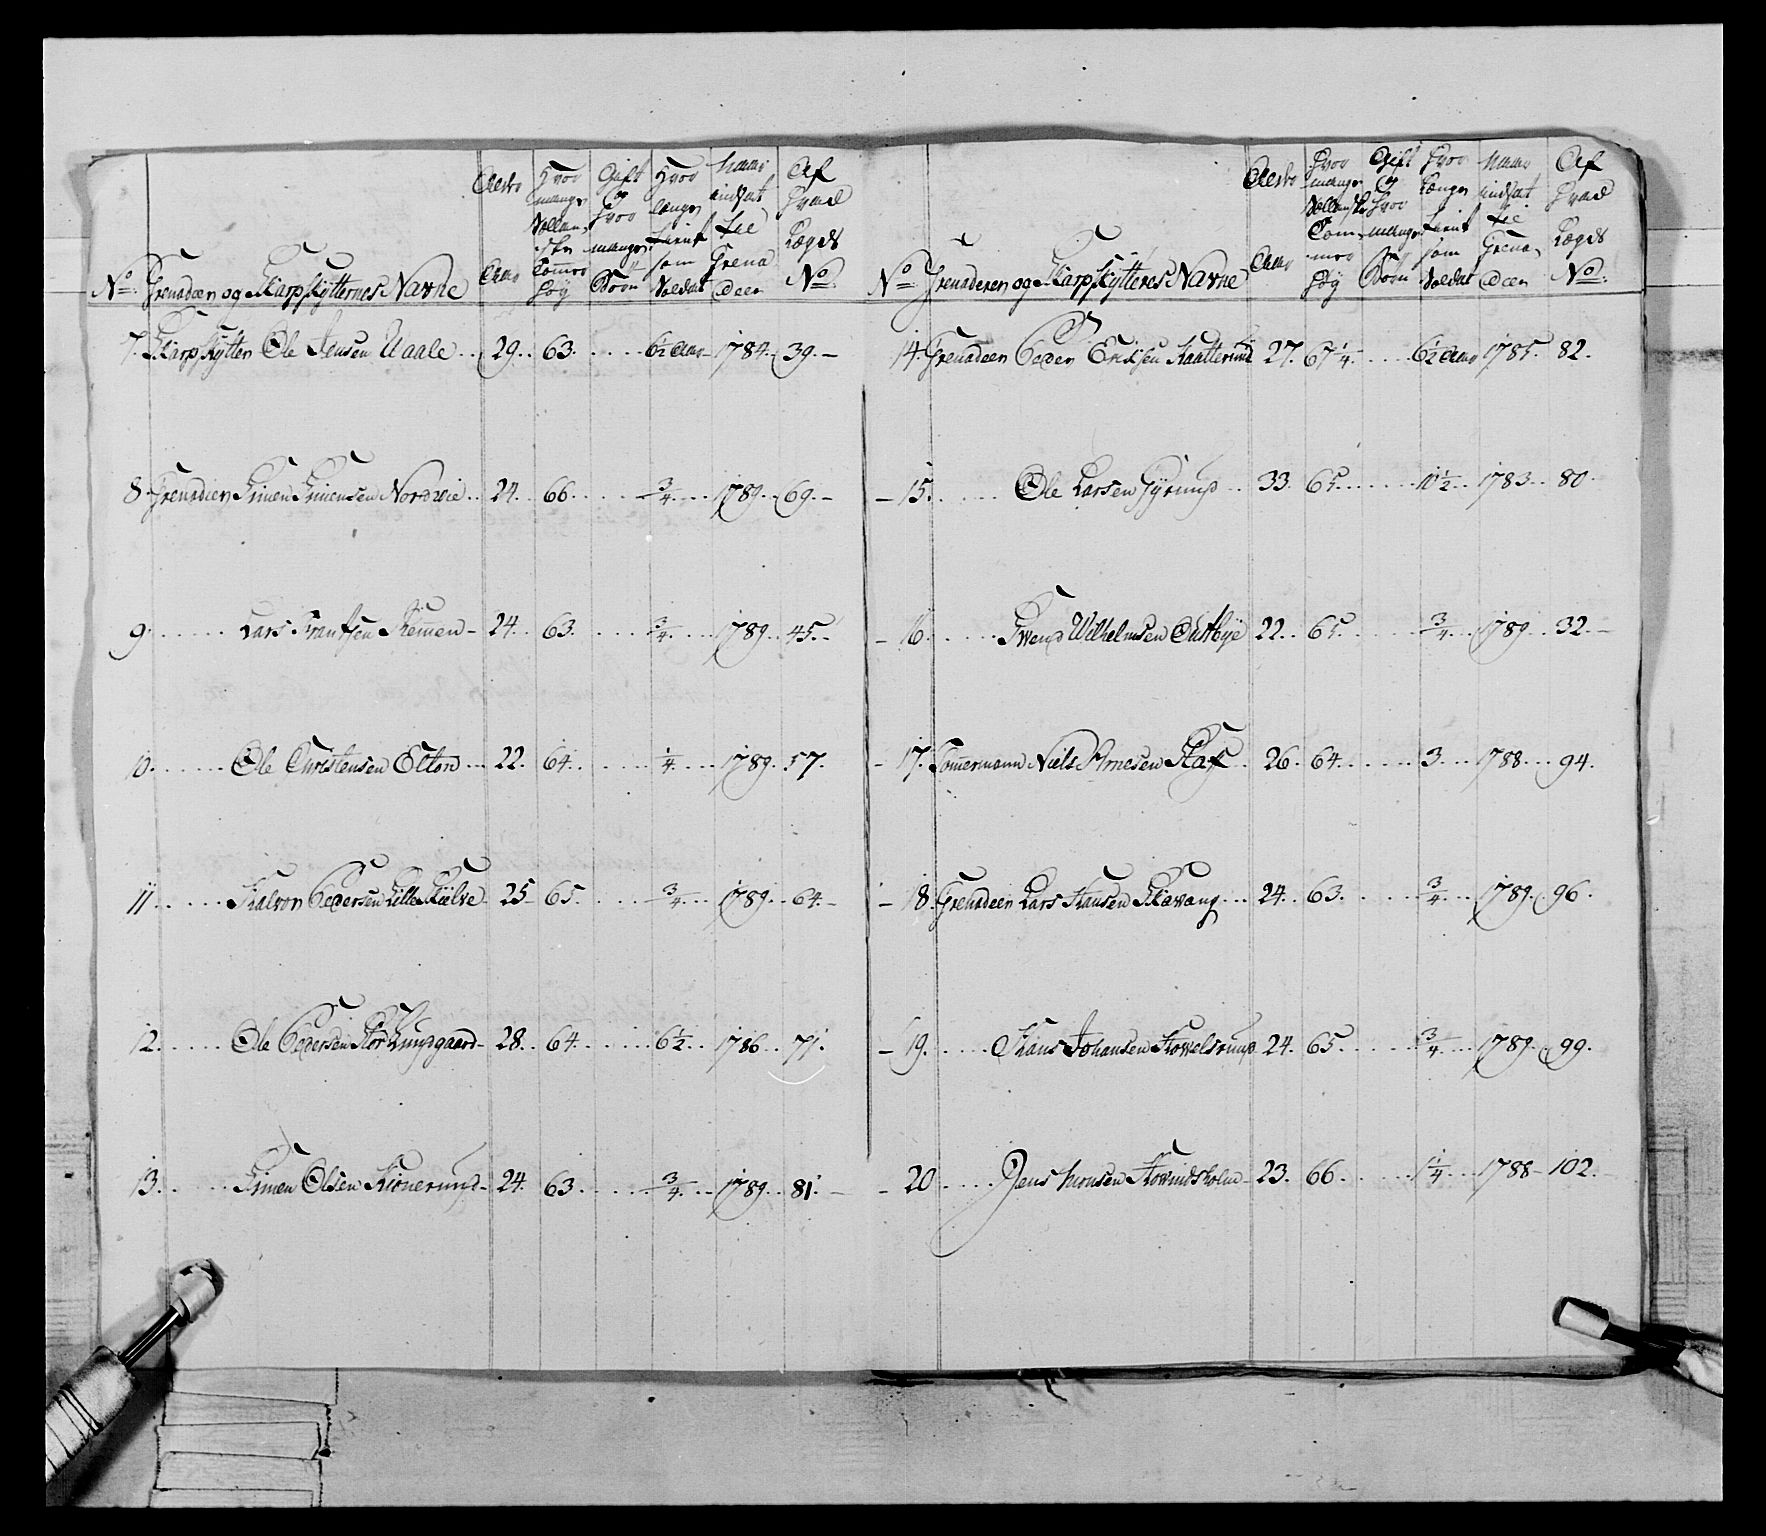 No: Grenadeer og Skarpskytternes Navne Alder Aar Hvor mange Sællandske Tommer høy Gift og hvor mange Børn Hvor længe tient som Soldat Naar indsat til Grenadeer Af hvad Lægds No:
7. Skarpskytter Ole Jensen Aaale .. 29. 63. ..... 6½ Aar 1784. 39. -
8 Grenadeer Simen Simensen Nordvie .. 24. 66. ..... ¾ .... 1789. 69. -
9. ..... Lars Frantsen Remen - 24. 63. ..... ¾ .... 1789. 45. -
10. ..... Ole Christensen Elton ... 22. 64. ..... ¼ .... 1789. 57.
11. ..... Halvor Pedersen Lille Kiølve 25 65. ..... ¾ .... 1789. 64. -
12. ..... Ole Pedersen Stor Lundgaard - 28. 64. ..... 6½ .. 1786. 71.
13. ..... Simen Olsen - 24. 63. ..... ¾ .... 1789. 81. -
No: Grenaderer og Skarpskytteres Navne Alder Aar Hvor mange Sællandske Tommer høy Gift og hvor mange Børn Hvor længe tient som Soldat Naar indsat til Grenadeer Af hvad Lægds No:
14. Grenadeer Peder Erichsen 27. 67¼. .... 6½ Aar 1785. 82.
- 15. ..... Ole Larsen .. 33. 65. ..... 10½ .. 1783. 80.
- 16. ..... Svend Wilhelmsen 22. 65. ..... ¾ .... 1789. 32. -
- 17. Tømermand Niels Arnesen .. 26. 64. ..... 3. ... 1788. ... 94.
- 18. Grenadeer Lars Hansen Skavang ... 24. 63. ..... ¾ .... 1789. 96.
- 19. ..... Hans Johansen Hovelsrud 24. 65. ..... ¾ .... 1789. 99.
- 20 ..... Jens Hovindsholm - 23. 66. ..... 1¼ .... 1788 - 102.